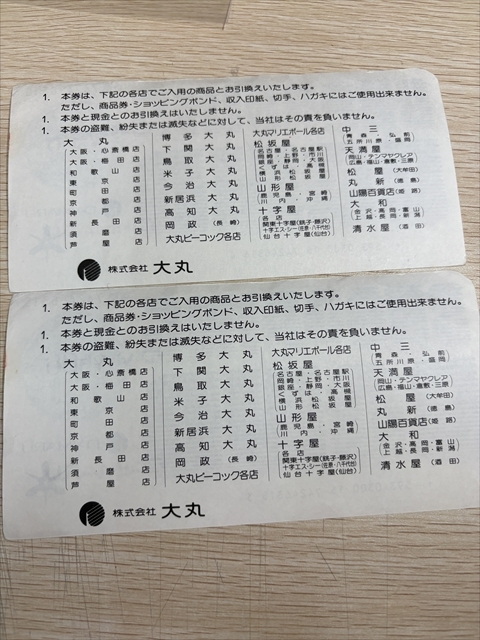 1. 本券は、下記の各店でご入用の商品とお引換えいたします。
ただし、商品券・ショッピングボンド、収入印紙、切手、ハガキにはご使用出来ません。
1. 本券と現金とのお引換えはいたしません。
1. 本券の盗難、紛失または滅失などに対して、当社はその責を負いません。
大丸
大阪・心斎橋店
大阪・梅田店
和歌山店
東京店
町田店
京都店
神戸店
新長田店
須磨店
芦屋店
博多大丸
下関大丸
鳥取大丸
米子大丸
今治大丸
新居浜大丸
高知大丸
岡政(長崎)
大丸ピーコック各店
大丸マリエボール各店
松坂屋
名古屋・名古屋駅
岡崎・上野・市川
銀座・静岡・大阪
くずは・高槻
横浜松坂屋
山形松坂屋
山形屋
鹿児島・宮崎
川内・沖縄
十字屋
各店
関東十字屋(銚子・藤沢)
十字エス・シー(佐原・八千代台)
仙台十字屋(仙台)
中三
青森・弘前
五所川原・盛岡
天満屋
岡山・テンマヤクレア
広島・福山・倉敷・三原
松屋(大牟田)
丸新(徳島)
山陽百貨店(姫路)
大和
金沢・高岡・富山
上越・長岡・新潟
清水屋(酒田)
株式会社 大丸
1. 本券は、下記の各店でご入用の商品とお引換えいたします。
ただし、商品券・ショッピングボンド、収入印紙、切手、ハガキにはご使用出来ません。
1. 本券と現金とのお引換えはいたしません。
1. 本券の盗難、紛失または滅失などに対して、当社はその責を負いません。
大丸
大阪・心斎橋店
大阪・梅田店
和歌山店
東京店
町田店
京都店
神戸店
新長田店
須磨店
芦屋店
博多大丸
下関大丸
鳥取大丸
米子大丸
今治大丸
新居浜大丸
高知大丸
岡政(長崎)
大丸ピーコック各店
大丸マリエボール各店
松坂屋
名古屋・名古屋駅
岡崎・上野・市川
銀座・静岡・大阪
くずは・高槻
横浜松坂屋
山形松坂屋
山形屋
鹿児島・宮崎
川内・沖縄
十字屋
各店
関東十字屋(銚子・藤沢)
十字エス・シー(佐原・八千代台)
仙台十字屋(仙台)
中三
青森・弘前
五所川原・盛岡
天満屋
岡山・テンマヤクレア
広島・福山・倉敷・三原
松屋(大牟田)
丸新(徳島)
山陽百貨店(姫路)
大和
金沢・高岡・富山
上越・長岡・新潟
清水屋(酒田)
株式会社 大丸